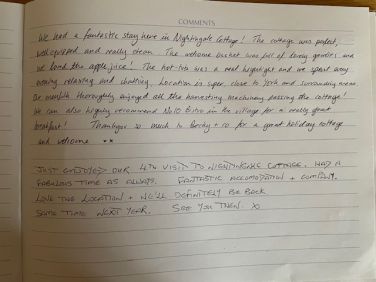 COMMENTS
We had a fantastic stay here in Nightingale Cottage! The cottage was perfect,
well equipped and really clean. The welcome basket was full of lovely goodies and
we loved the apple juice! The hot-tub was a real highlight and we spent many
evening relaxing and chatting. Location is super, close to York and surrounding areas
thoroughly enjoyed all the harvesting machinery passing the cottage!
We can also highly recommend No10 Bistro in the village for a really great
breakfast! Thankyou so much to Becky + co for a great holiday cottage
and welcome **
JUST ENJOYED OUR 4TH VISIT TO NIGHTINGALE COTTAGE. HAD A
FABULOUS TIME AS ALWAYS. FANTASTIC ACCOMODATION + COMPANY.
LOVE THE LOCATION + WE'LL DEFINITELY BE BACK
SAME TIME NEXT YEAR. SEE YOU THEN. X